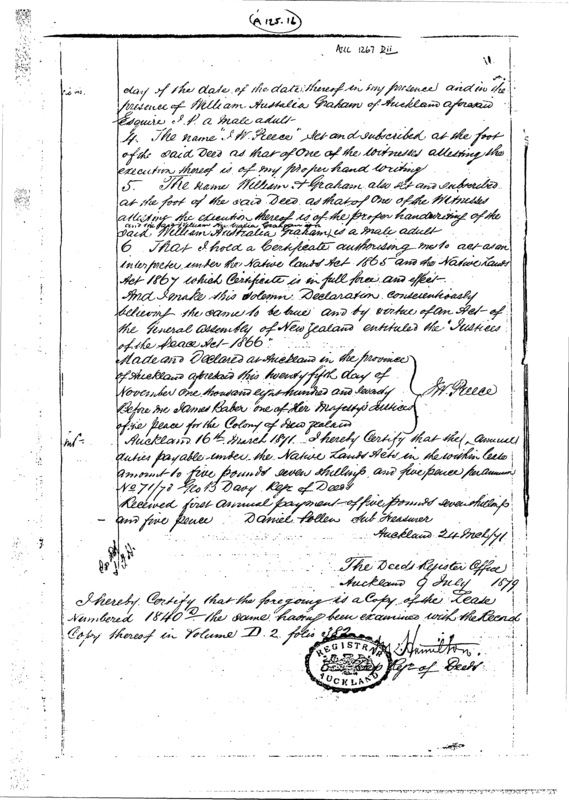 A 125.16
ACC 1267 DII
11.
day of the date of the date thereof in my presence and in the
presence of William Australia Graham of Auckland aforesaid
Esquire J.P. a male adult
4. The name "J W Preece" set and subscribed at the foot
of the said Deed as that of One of the Witnesses attesting the
execution thereof is of my proper hand writing
5. The name William A Graham also set and subscribed
at the foot of the said Deed as that of One of the Witnesses
attesting the execution thereof is of the proper handwriting of the
said William Australia Graham
is a male adult
6 That I hold a Certificate authorising me to act as an
interpreter under the Native Lands Act 1865 and the Native Lands
Act 1867 which Certificate is in full force and effect.
And I make this solemn Declaration conscientiously
believing the same to be true and by virtue of an Act of
the General Assembly of New Zealand entituled the "Justices
of the Peace Act 1866"
Made and Declared at Auckland in the province
of Auckland aforesaid this twenty fifth day of
November One thousand eight hundred and seventy
Before me James Baber one of Her Majesty's Justices
of the peace for the Colony of New Zealand
JW Preece
Auckland 16th March 1871. I hereby Certify that the annual
duties payable under the Native Lands Acts in the within Lease
amount to five pounds seven shillings and five pence per annum
No 71/73 Geo B Davy Regr of Deeds
Received first Annual payment of five pounds seven shillings
and five pence Daniel Pollen Sub Treasurer
Auckland 24 Mch/71
The Deeds Register Office
Auckland 9 July 1879
I hereby Certify that the foregoing is a Copy of the Lease
Numbered 1840 D the same having been examined with the Record
Copy thereof in Volume D. 2 folio
Hamilton.
Regr of Deeds
REGISTRAR
AUCKLAND